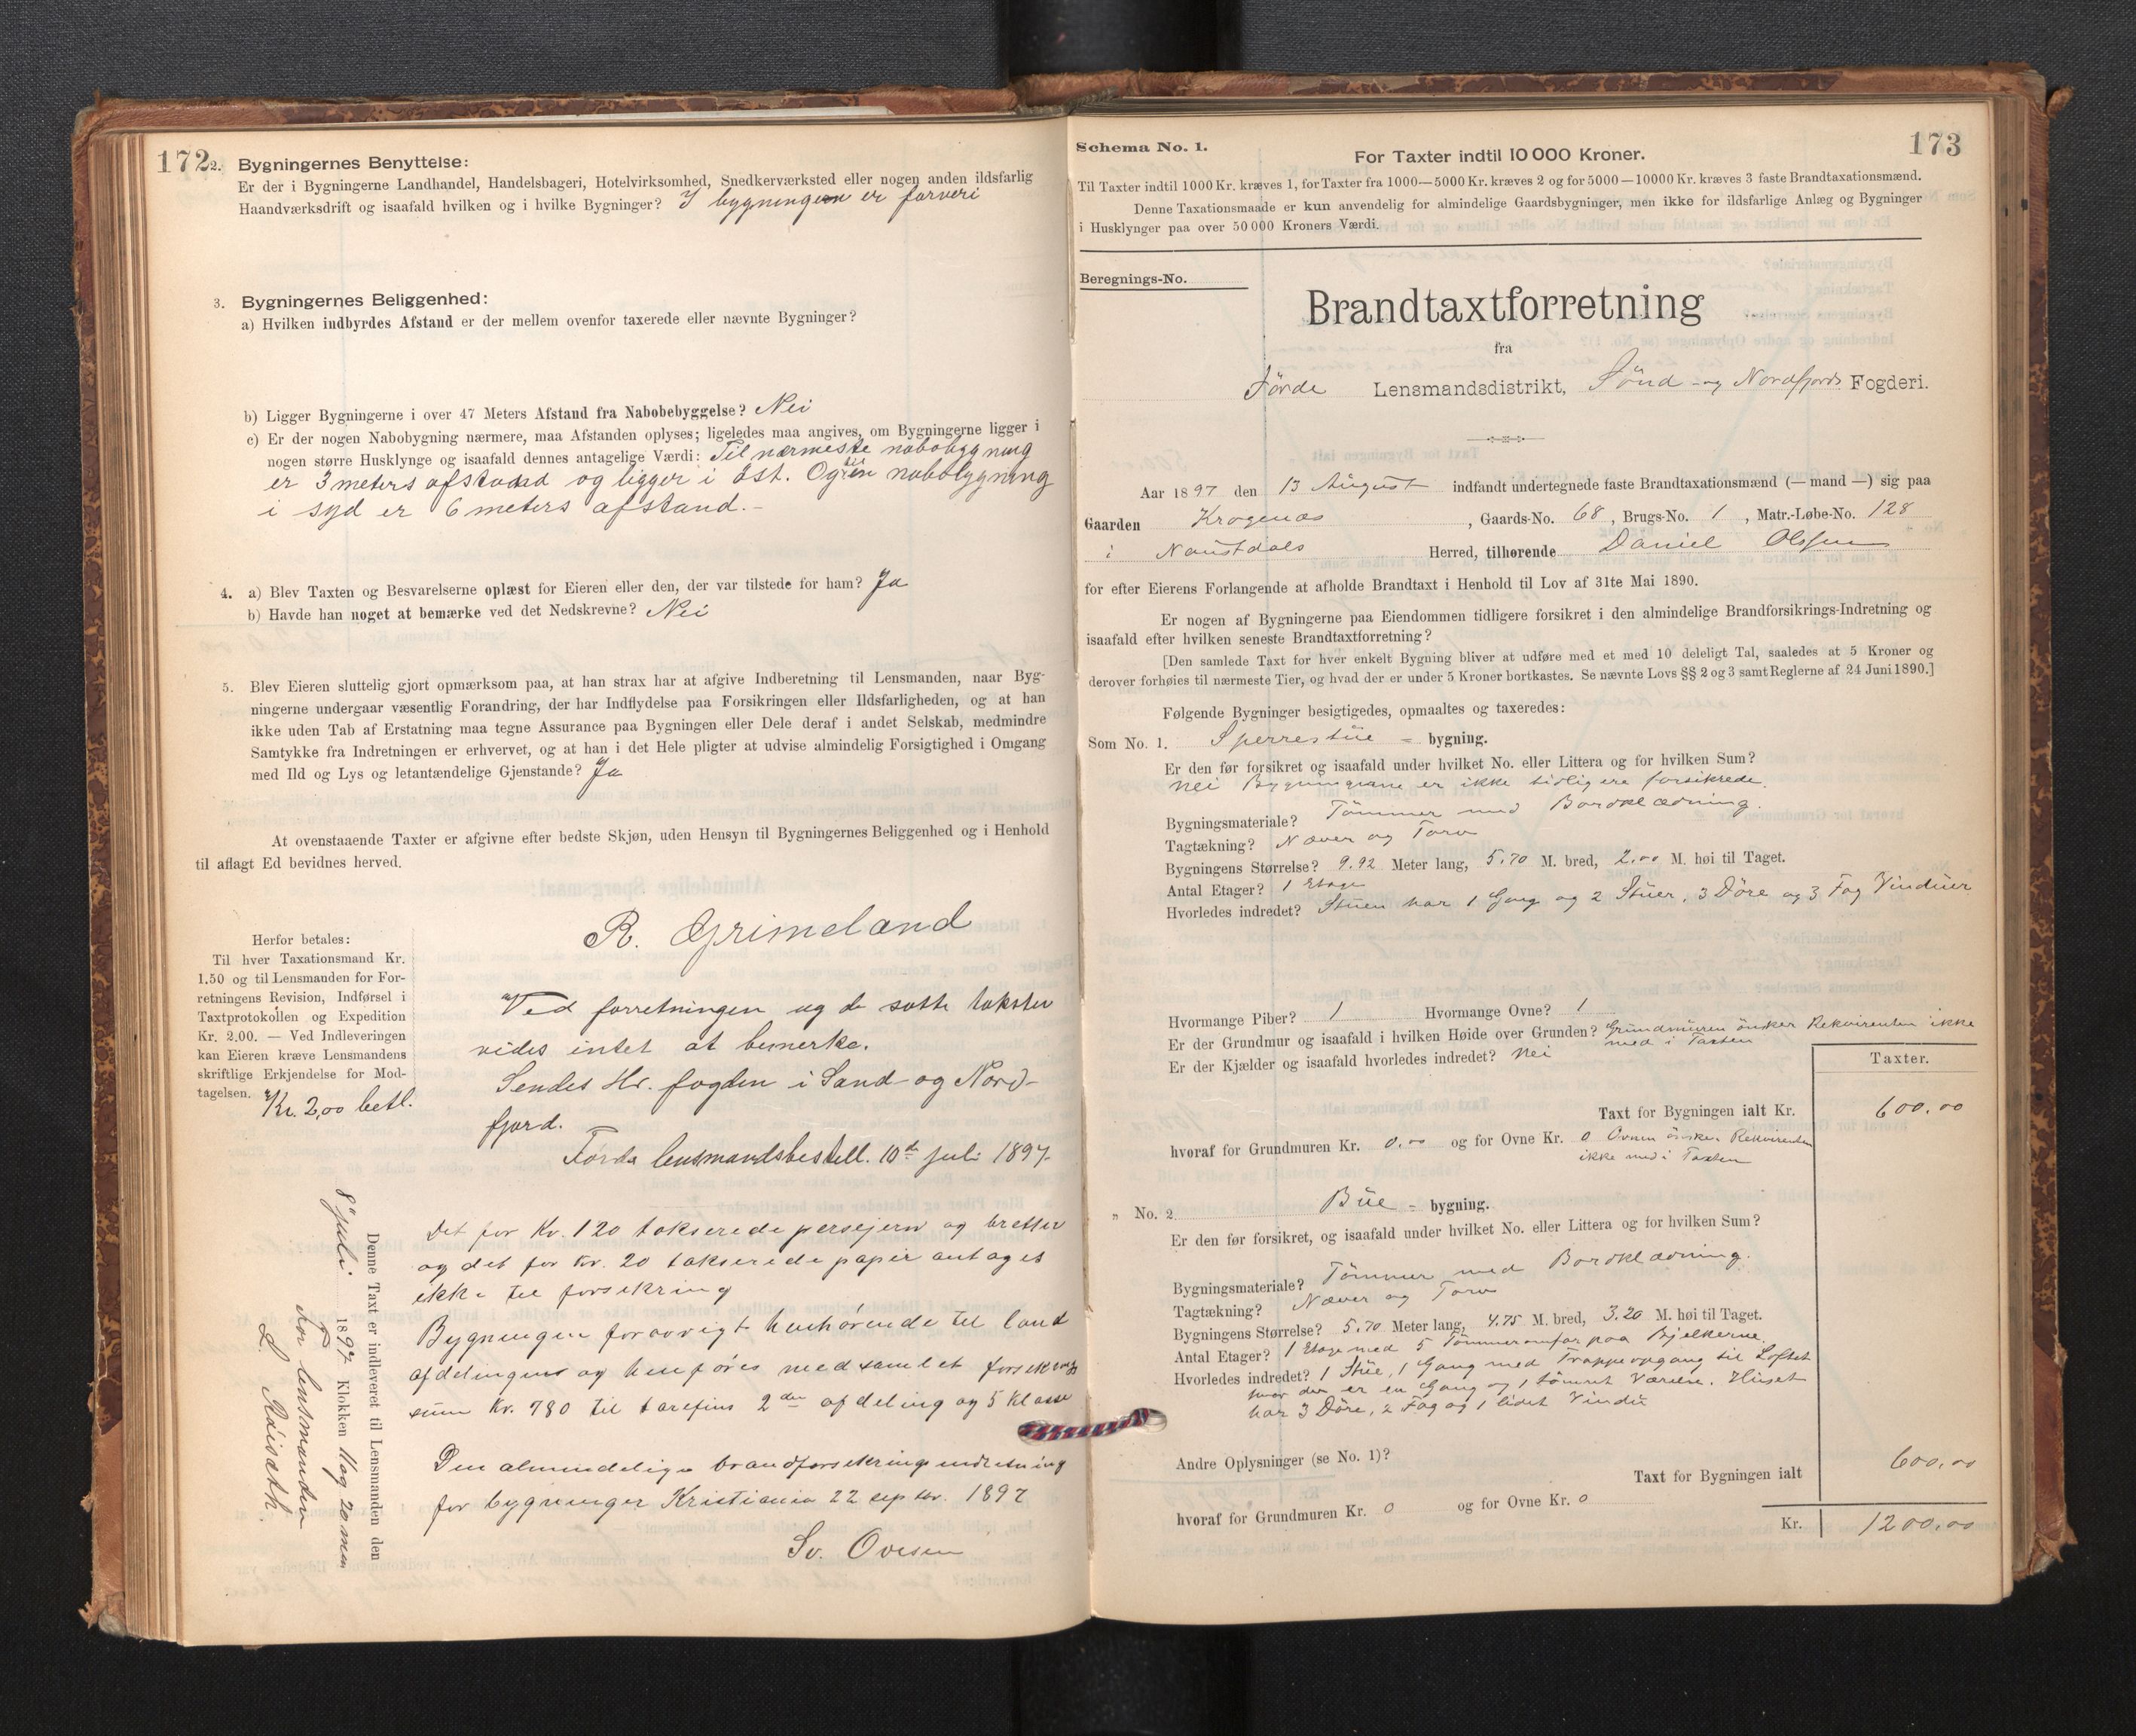 172
2. Bygningernes Benyttelse:
Er der i Bygningerne Landhandel, Handelsbageri, Hotelvirksomhed, Snedkerværksted eller nogen anden ildsfarlig
Haandværksdrift og isaafald hvilken og i hvilke Bygninger? I bygningen er farveri
3. Bygningernes Beliggenhed:
a) Hvilken indbyrdes Afstand er der mellem ovenfor taxerede eller nævnte Bygninger?
b) Ligger Bygningerne i over 47 Meters Afstand fra Nabobebyggelse? Nei
c) Er der nogen Nabobygning nærmere, maa Afstanden oplyses; ligeledes maa angives, om Bygningerne ligger i
nogen større Husklynge og isaafald dennes antagelige Værdi: Til nærmeste nabobygning
er 3 meters afstand og ligger i øst. Og til en nabobygning
i syd er 6 meters afstand.-
4. a) Blev Taxten og Besvarelserne oplæst for Eieren eller den, der var tilstede for ham? Ja
b) Havde han noget at bemærke ved det Nedskrevne? Nei
5. Blev Eieren sluttelig gjort opmærksom paa, at han strax har at afgive Indberetning til Lensmanden, naar Byg-
ningerne undergaar væsentlig Forandring, der har Indflydelse paa Forsikringen eller Ildsfarligheden, og at han
ikke uden Tab af Erstatning maa tegne Assurance paa Bygningen eller Dele deraf i andet Selskab, medmindre
Samtykke fra Indretningen er erhvervet, og at han i det Hele pligter at udvise almindelig Forsigtighed i Omgang
med Ild og Lys og letantændelige Gjenstande? Ja
At ovenstaaende Taxter er afgivne efter bedste Skjøn, uden Hensyn til Bygningernes Beliggenhed og i Henhold
til aflagt Ed bevidnes herved.
R. Grimeland
Herfor betales:
Til hver Taxationsmand Kr.
1.50 og til Lensmanden for For-
retningens Revision, Indførsel i
Taxtprotokollen og Expedition
Kr. 2.00. — Ved Indleveringen
kan Eieren kræve Lensmandens
skriftlige Erkjendelse for Mod-
tagelsen. Kr. 2,00 betl.
Ved forretningen og de satte takster
vides intet at bemerke.
Sendes Hr. fogden i Sønd- og Nord-
fjord.
Førde lensmandsbestell. 10de juli 1897.
Denne Taxt er indleveret til Lensmanden den
8 juli 1897 Klokken 11 og 20 min
For lensmanden
Det for Kr. 120 takserede persejern og bretter
og det for Kr. 20 takserede papir antages
ikke til forsikring
Bygningen forøvrigt henhørende til land
afdelingen og henføres med samlet forsikrings
sum Kr. 780 til tarefins 2den afdeling og 5 Klasse
Den almindelige brandforsikringsindretning
for bygninger Kristiania 22 septbr. 1897
Sv. Ovesen
173
Schema No. 1.
For Taxter indtil 10 000 Kroner.
Til Taxter indtil 1000 Kr. kræves 1, for Taxter fra 1000—5000 Kr. kræves 2 og for 5000—10000 Kr. kræves 3 faste Brandtaxationsmænd.
Denne Taxationsmaade er kun anvendelig for almindelige Gaardsbygninger, men ikke for ildsfarlige Anlæg og Bygninger
i Husklynger paa over 50 000 Kroners Værdi.
Beregnings-No.
Brandtaxtforretning
fra
Førde Lensmandsdistrikt, Sønd- og Nordfjords Fogderi.
Aar 1897 den 13 August indfandt undertegnede faste Brandtaxationsmænd (—mand—) sig paa
Gaarden Krogenæs, Gaards-No. 68, Brugs-No. 1, Matr.-Løbe-No. 128
i Naustdals Herred, tilhørende Daniel Olssen
for efter Eierens Forlangende at afholde Brandtaxt i Henhold til Lov af 31te Mai 1890.
Er nogen af Bygningerne paa Eiendommen tidligere forsikret i den almindelige Brandforsikrings-Indretning og
isaafald efter hvilken seneste Brandtaxtforretning?
[Den samlede Taxt for hver enkelt Bygning bliver at udføre med et med 10 deleligt Tal, saaledes at 5 Kroner og
derover forhøies til nærmeste Tier, og hvad der er under 5 Kroner bortkastes. Se nævnte Lovs §§ 2 og 3 samt Reglerne af 24 Juni 1890.]
Følgende Bygninger besigtigedes, opmaaltes og taxeredes:
Som No. 1. Sperrestue - bygning.
Er den før forsikret og isaafald under hvilket No. eller Littera og for hvilken Sum?
Nei Bygningerne er ikke tidligere forsikrede.
Bygningsmateriale? Tømmer med Bordklædning.
Tagtækning? Næver og Torv
Bygningens Størrelse? 9.92 Meter lang, 5.70 M. bred, 2.00 M. høi til Taget.
Antal Etager? 1 Etage
Hvorledes indredet? Stuen har 1 Gang og 2 Stuer, 3 Døre og 3 Fag Vinduer
Hvormange Piber? 1 Hvormange Ovne? 1
Er der Grundmur og isaafald i hvilken Høide over Grunden? Grundmuren ønsker Rekvirenten ikke
med i Taxten
Er der Kjælder og isaafald hvorledes indredet? Nei
Taxter.
Taxt for Bygningen ialt Kr. 600.00
hvoraf for Grundmuren Kr. 0.00 og for Ovne Kr. 0 Ovnen ønsker Rekvirenten
ikke med i Taxten
„ No. 2 Bue - bygning.
Er den før forsikret, og isaafald under hvilket No. eller Littera og for hvilken Sum?
Bygningsmateriale? Tømmer med Bordklædning.
Tagtækning? Næver og Torv
Bygningens Størrelse? 5.70 Meter lang, 4.75 M. bred, 3.20 M. høi til Taget.
Antal Etager? 1 Etage med 5 Tømmeromfar paa Bjelkerne.
Hvorledes indredet? 1 Stue, 1 Gang med Trappeopgang til Loftet
hvor der er en Gang og 1 tømret Værelse. Huset
har 3 Døre, 2 Fag og 1 lidet Vindu
Andre Oplysninger (se No. 1)?
Taxt for Bygningen ialt 600.00
hvoraf for Grundmuren Kr. 0 og for Ovne Kr. 0
Kr. 1200.00